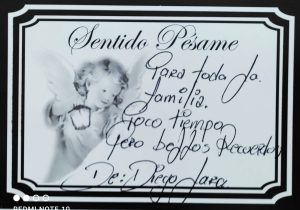 Sentido Pésame
Para toda la
familia.
Poco tiempo
Pero bellos Recuerdos
De: Diego Jara.
REDMI NOTE 10